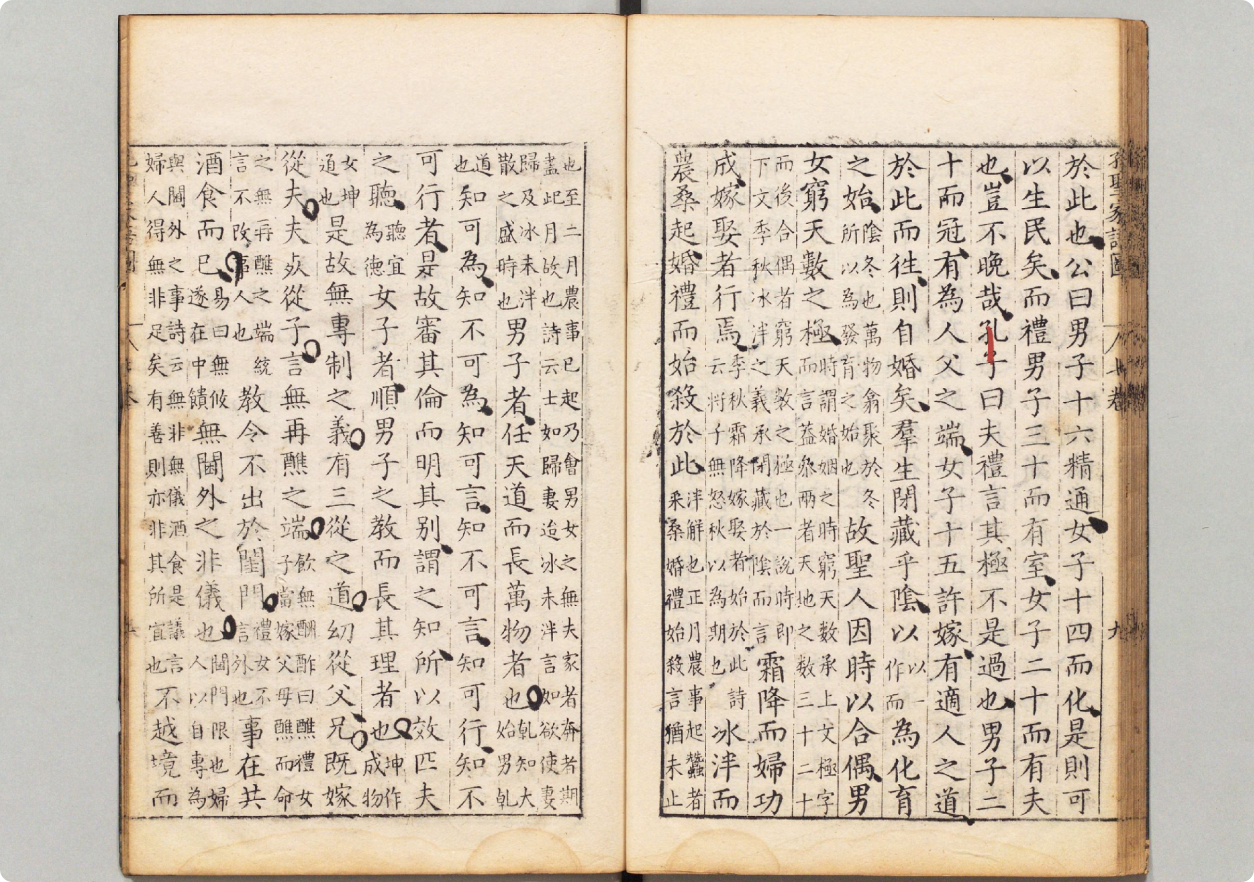 孔聖家語圖
於此也公曰男子十六精通女子十四而化是則可
以生民矣而禮男子三十而有室女子二十而有夫
也豈不晚哉孔子曰夫禮言其極不是過也男子二
十而冠有為人父之端女子十五許嫁有適人之道
於此而徃則自婚矣羣生閉藏乎陰以以一作而為化育
之始陰冬也萬物翕聚於冬所以為發育之始也故聖人因時以合偶男
女窮天數之極時謂婚姻之時窮天數承上文極字而言蓋參兩者天地之數三十二十
而後合偶者窮天數之極也一說時即下文季秋冰泮之義承閉藏於陰而言霜降而婦功
成嫁娶者行焉季秋霜降嫁娶者始於此詩云將子無怒秋以為期也冰泮而
農桑起婚禮而始殺於此泮解也正月農事起蠶者采桑婚禮始殺言猶未止
也至二月農事已起乃會男女之無夫家者奔者期盡此月故也詩云士如歸妻迨冰未泮言如欲使妻
歸及冰未泮散之盛時也男子者任天道而長萬物者也乾知大始男乾
道也知可為知不可為知可言知不可言知可行知不
可行者是故審其倫而明其別謂之知所以效匹夫
之聽聽宜為德女子者順男子之教而長其理者也坤作成物
女坤道也是故無專制之義有三從之道幼從父兄既嫁
從夫夫死從子言無再醮之端飲無酬酢曰醮禮女子當嫁父母醮而命
之無再醮之端統言不改事人也教令不出於閨門禮女不言外也事在共
酒食而已易曰無攸遂在中饋無閫外之非儀也閫門限也婦人以自專為
與閫外之事詩云無非無儀酒食是議言婦人得無非足矣有善則亦非其所宜也不越境而